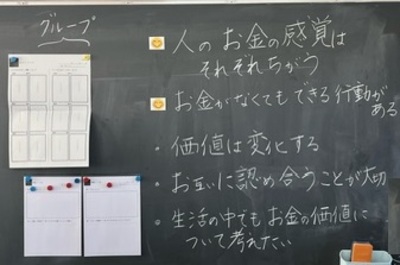 グループ
人のお金の感覚は
それぞれちがう
お金がなくてもできる行動が
ある
・価値は変化する
・お互いに認め合うことが大切
・生活の中でもお金の価値に
ついて考えたい